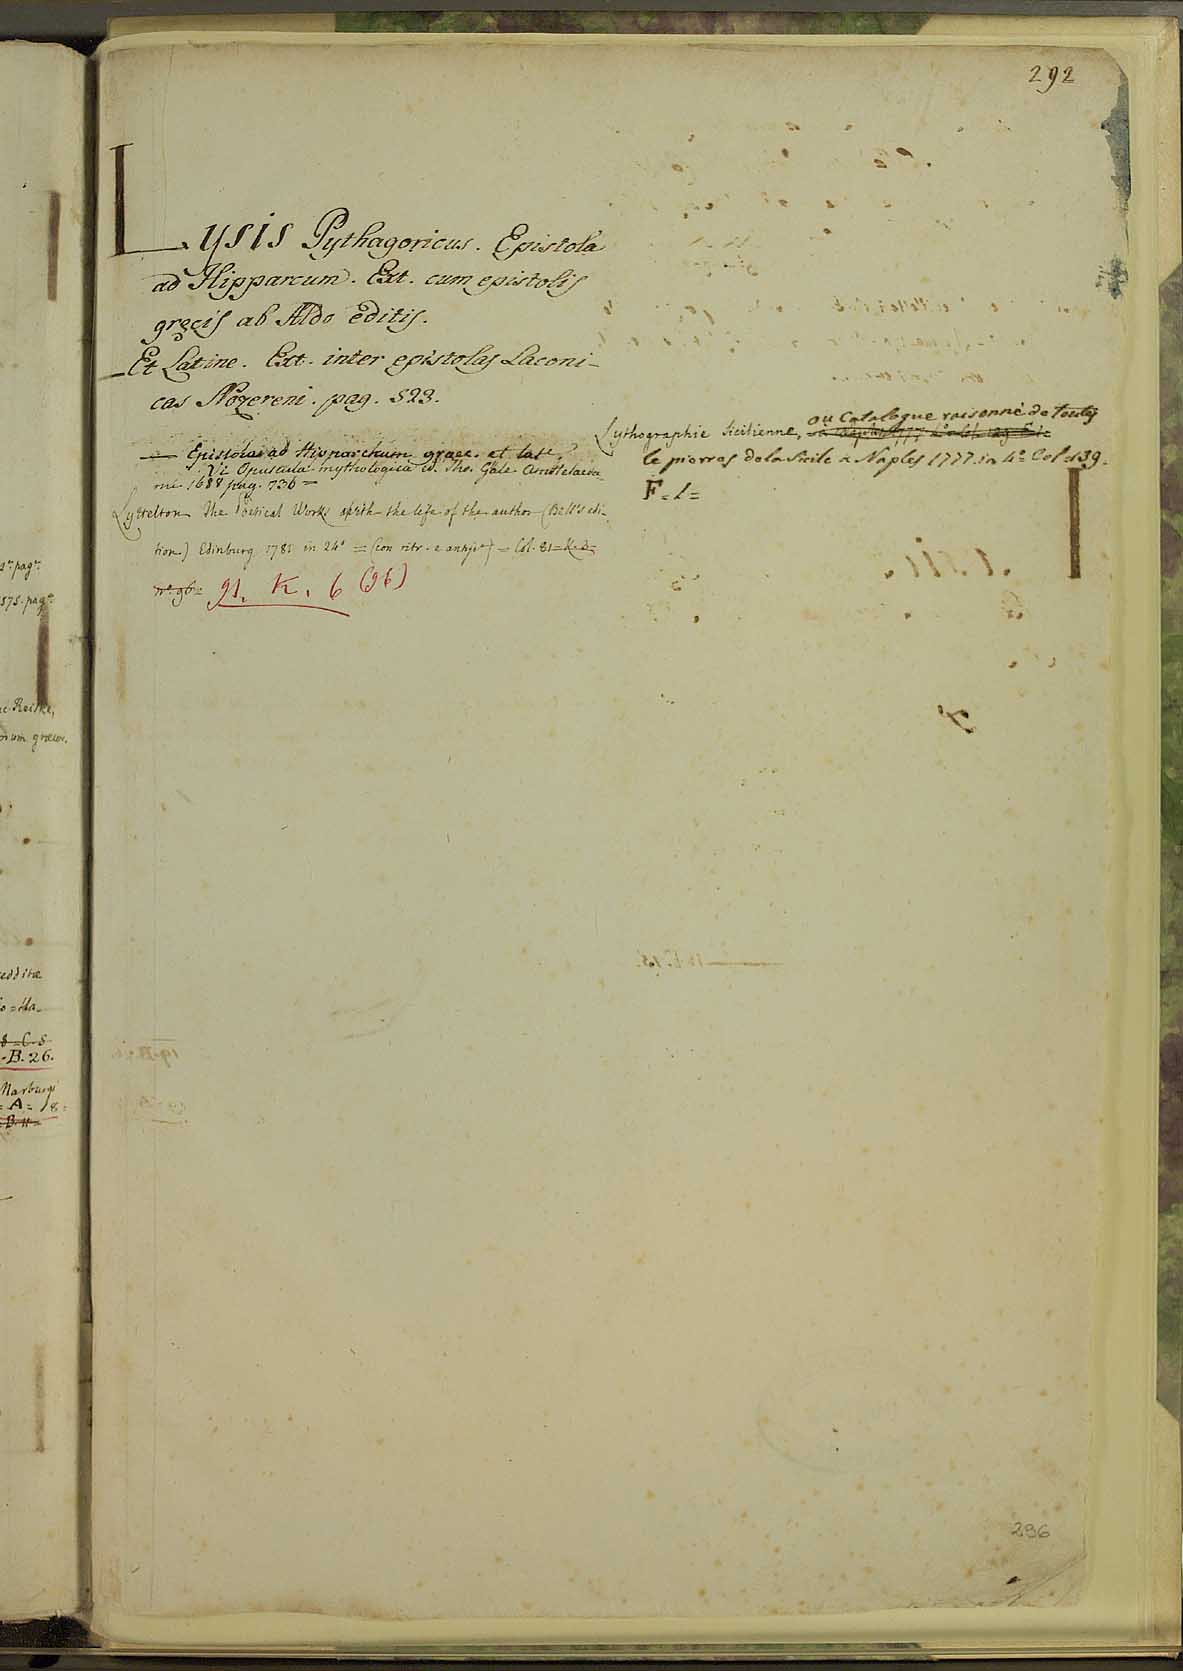 292
Lysis Pythagoricus. Epistola
ad Hipparcum. Ext. cum epistolis
gręcis ab Aldo editis.
Et Latine. Ext. inter epistolas Laconi-
cas pag. 523.
— Epistola ad Hipparchum graec. et lat.
Opuscula mythologica ed. Tho. Gale Amstelaeda-
mi 1688 pag. 736 =
Lyttelton The Poetical Works with the life of the author (Bell's edi-
tion) Edinburg 1781 in 24° = (con ritr. e antip.) = Col. 81 = K. 2=
n° 96=
91. K. 6 (96)
Lythographie Sicilienne, ou Catalogue raisonné de toutes
le pierres de la Sicile a Naples 1777. in 4° Col. 139.
F = 1 =
296
2° pag.
1575. pag.
Reiske,
graecor.
edditae
8 = C. 5
B. 26.
Marburgi
= A = 18 =
= B. 11 =